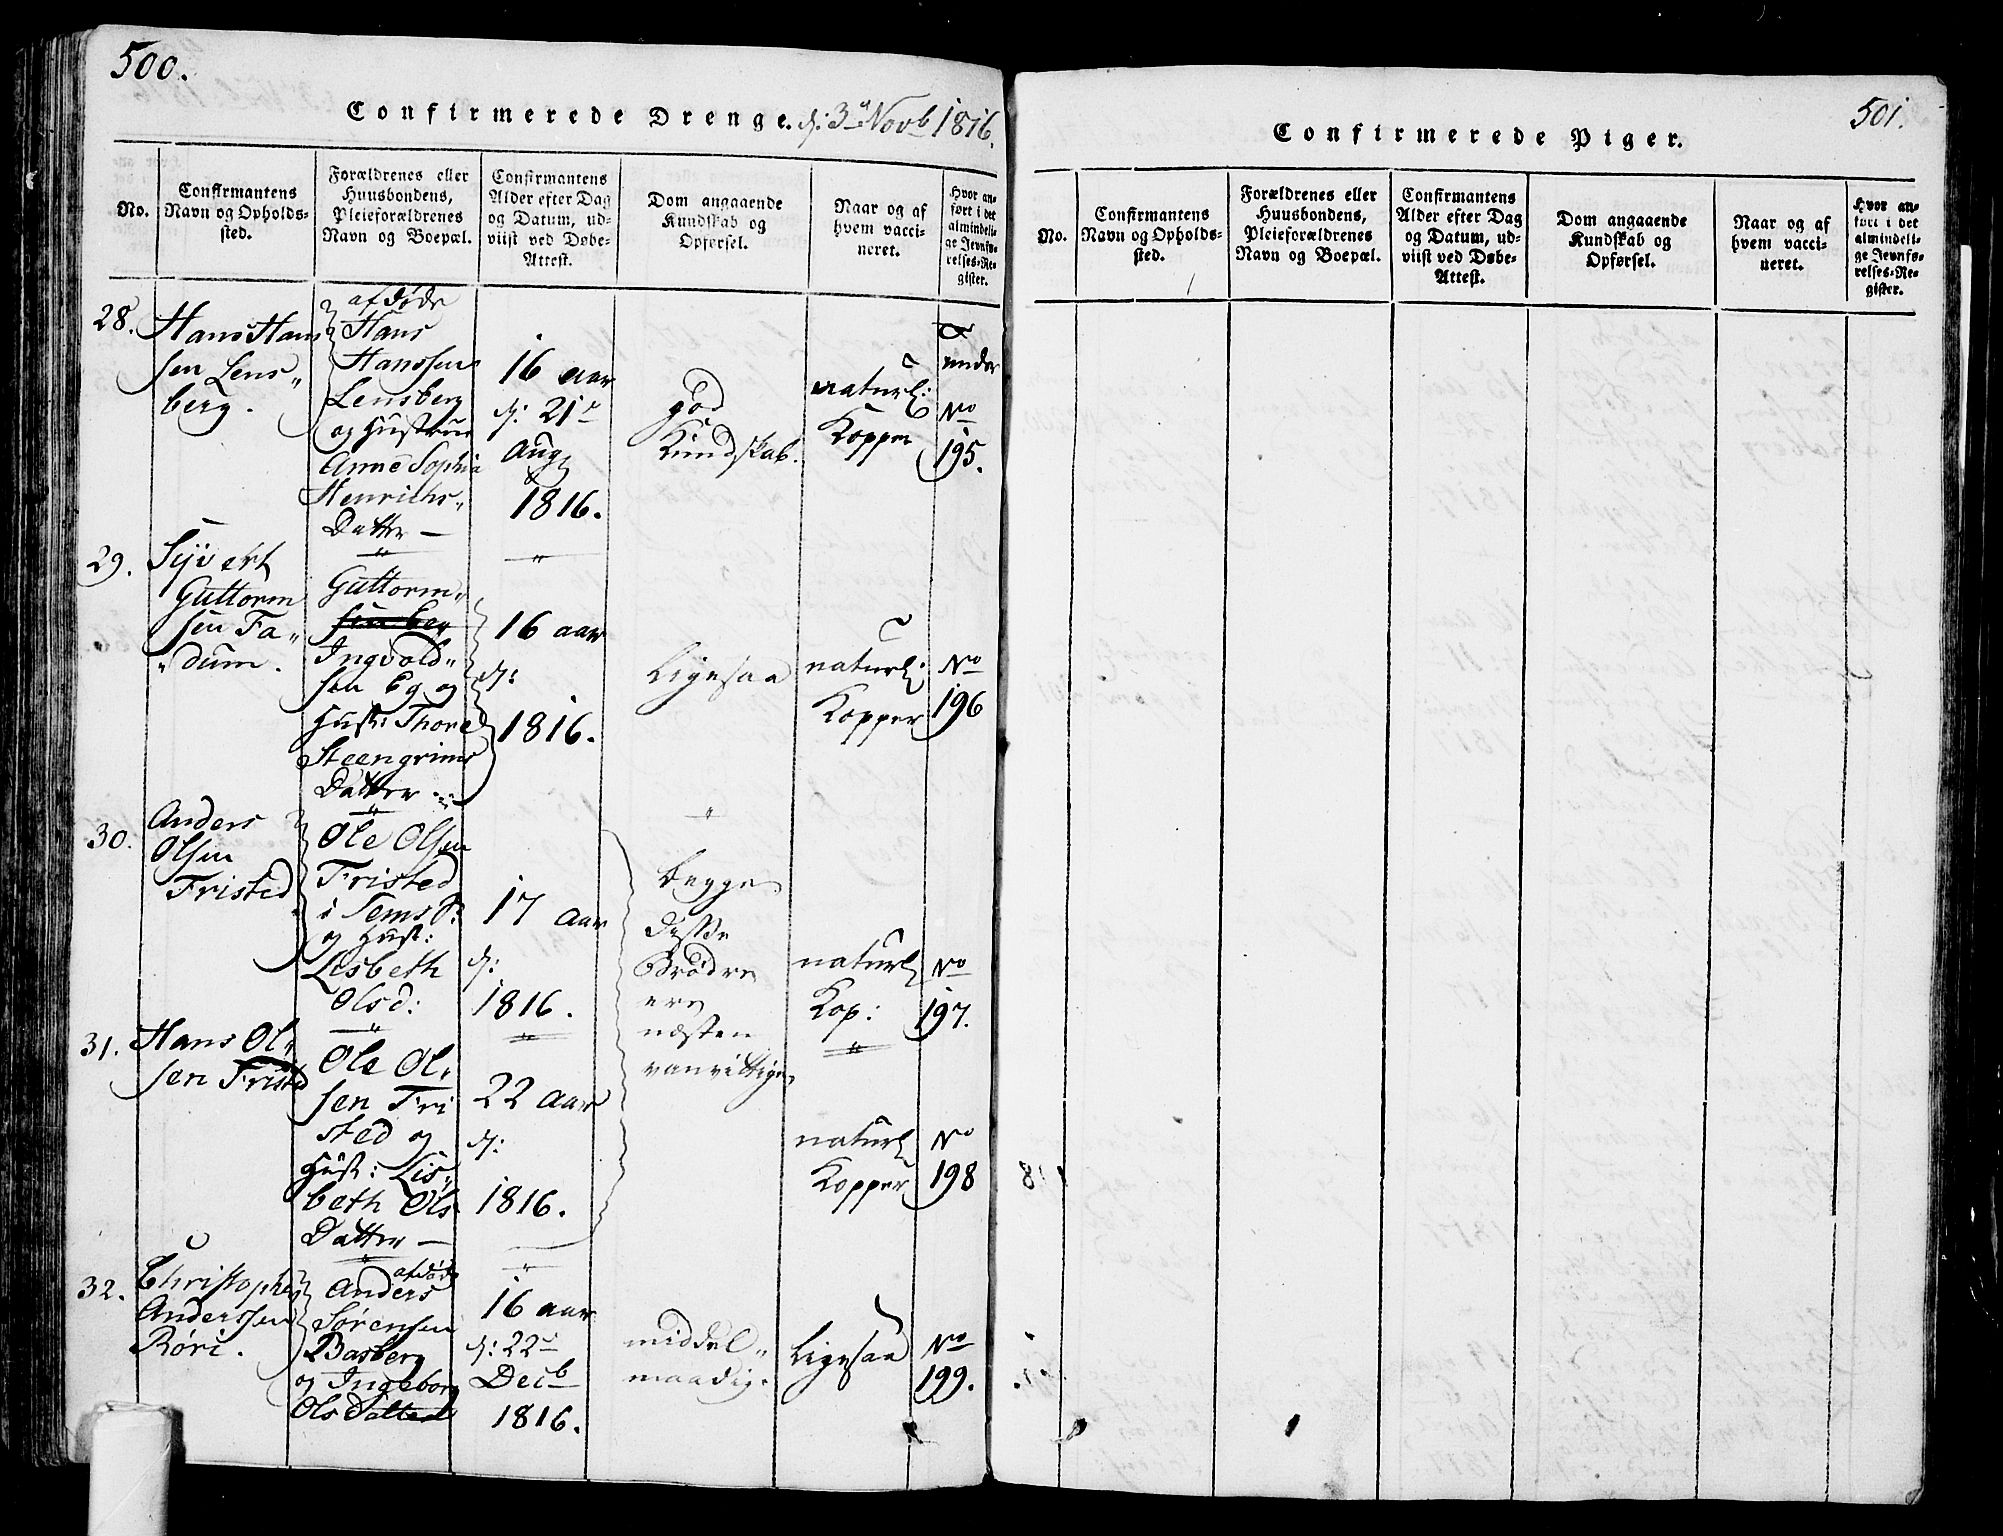 500.
Confirmerede Drenge. d: 3d Novb 1816.
No.
Confirmantens
Navn og Opholds-
sted.
Forældrenes eller
Huusbondens,
Pleieforældrenes
Navn og Boepæl.
Confirmantens
Alder efter Dag
og Datum, ud-
viist ved Døbe-
Attest.
Dom angaaende
Kundskab og
Opførsel.
Naar og af
hvem vacci-
neret.
Hvor an-
ført i det
almindeli-
ge Jevnfø-
relses-Re-
gister.
28.
Hans Han
sen Lens„
berg.
afdøde
Hans
Hanssen
Lensberg
og Hustrue
Anne Sophia
Henrichs„
Datter —
16 aar
d: 21d
Aug
1816.
god
Kundskab.
naturl:
Kopper
under
No
195.
29.
Syvert
Guttorm
sen Fa„
„dum.
Guttorm„
Ingvold„
sen Eg og
Hust: Thore
Steengrims
Datter
16 aar
d:
1816.
Ligesaa
naturl:
Kopper
No
196
30.
Anders
Olsen
Fristed
Ole Olsen
Fristed
i Sems S:
og Hust:
Lisbeth
Olsd:
17 aar
d:
1816.
begge
disse
Brødre
ere
næsten
vanvittige
naturl
Kop:
No
197.
31.
Hans Ol„
sen Fristed
Ole Ol„
sen Fri
sted og
Hust: Lis„
beth Ols
Datter —
22 aar
d:
1816.
naturl
Kopper
No
198
32.
Christopher
Anderssen
Røri.
afdøde
Anders
Sørensen
Basberg
og Ingeborg
Ols Datter
16 aar
d: 22d
Decb
1816.
middel„
maadig.
Ligesaa
No
199.
501.
Confirmerede Piger.
No.
Confirmantens
Navn og Opholds-
sted.
Forældrenes eller
Huusbondens,
Pleieforældrenes
Navn og Boepæl.
Confirmantens
Alder efter Dag
og Datum, ud-
viist ved Døbe-
Attest.
Dom angaaende
Kundskab og
Opførsel.
Naar og af
hvem vacci-
neret.
Hvor an-
ført i det
almindeli-
ge Jevnfø-
relses-Re-
gister.